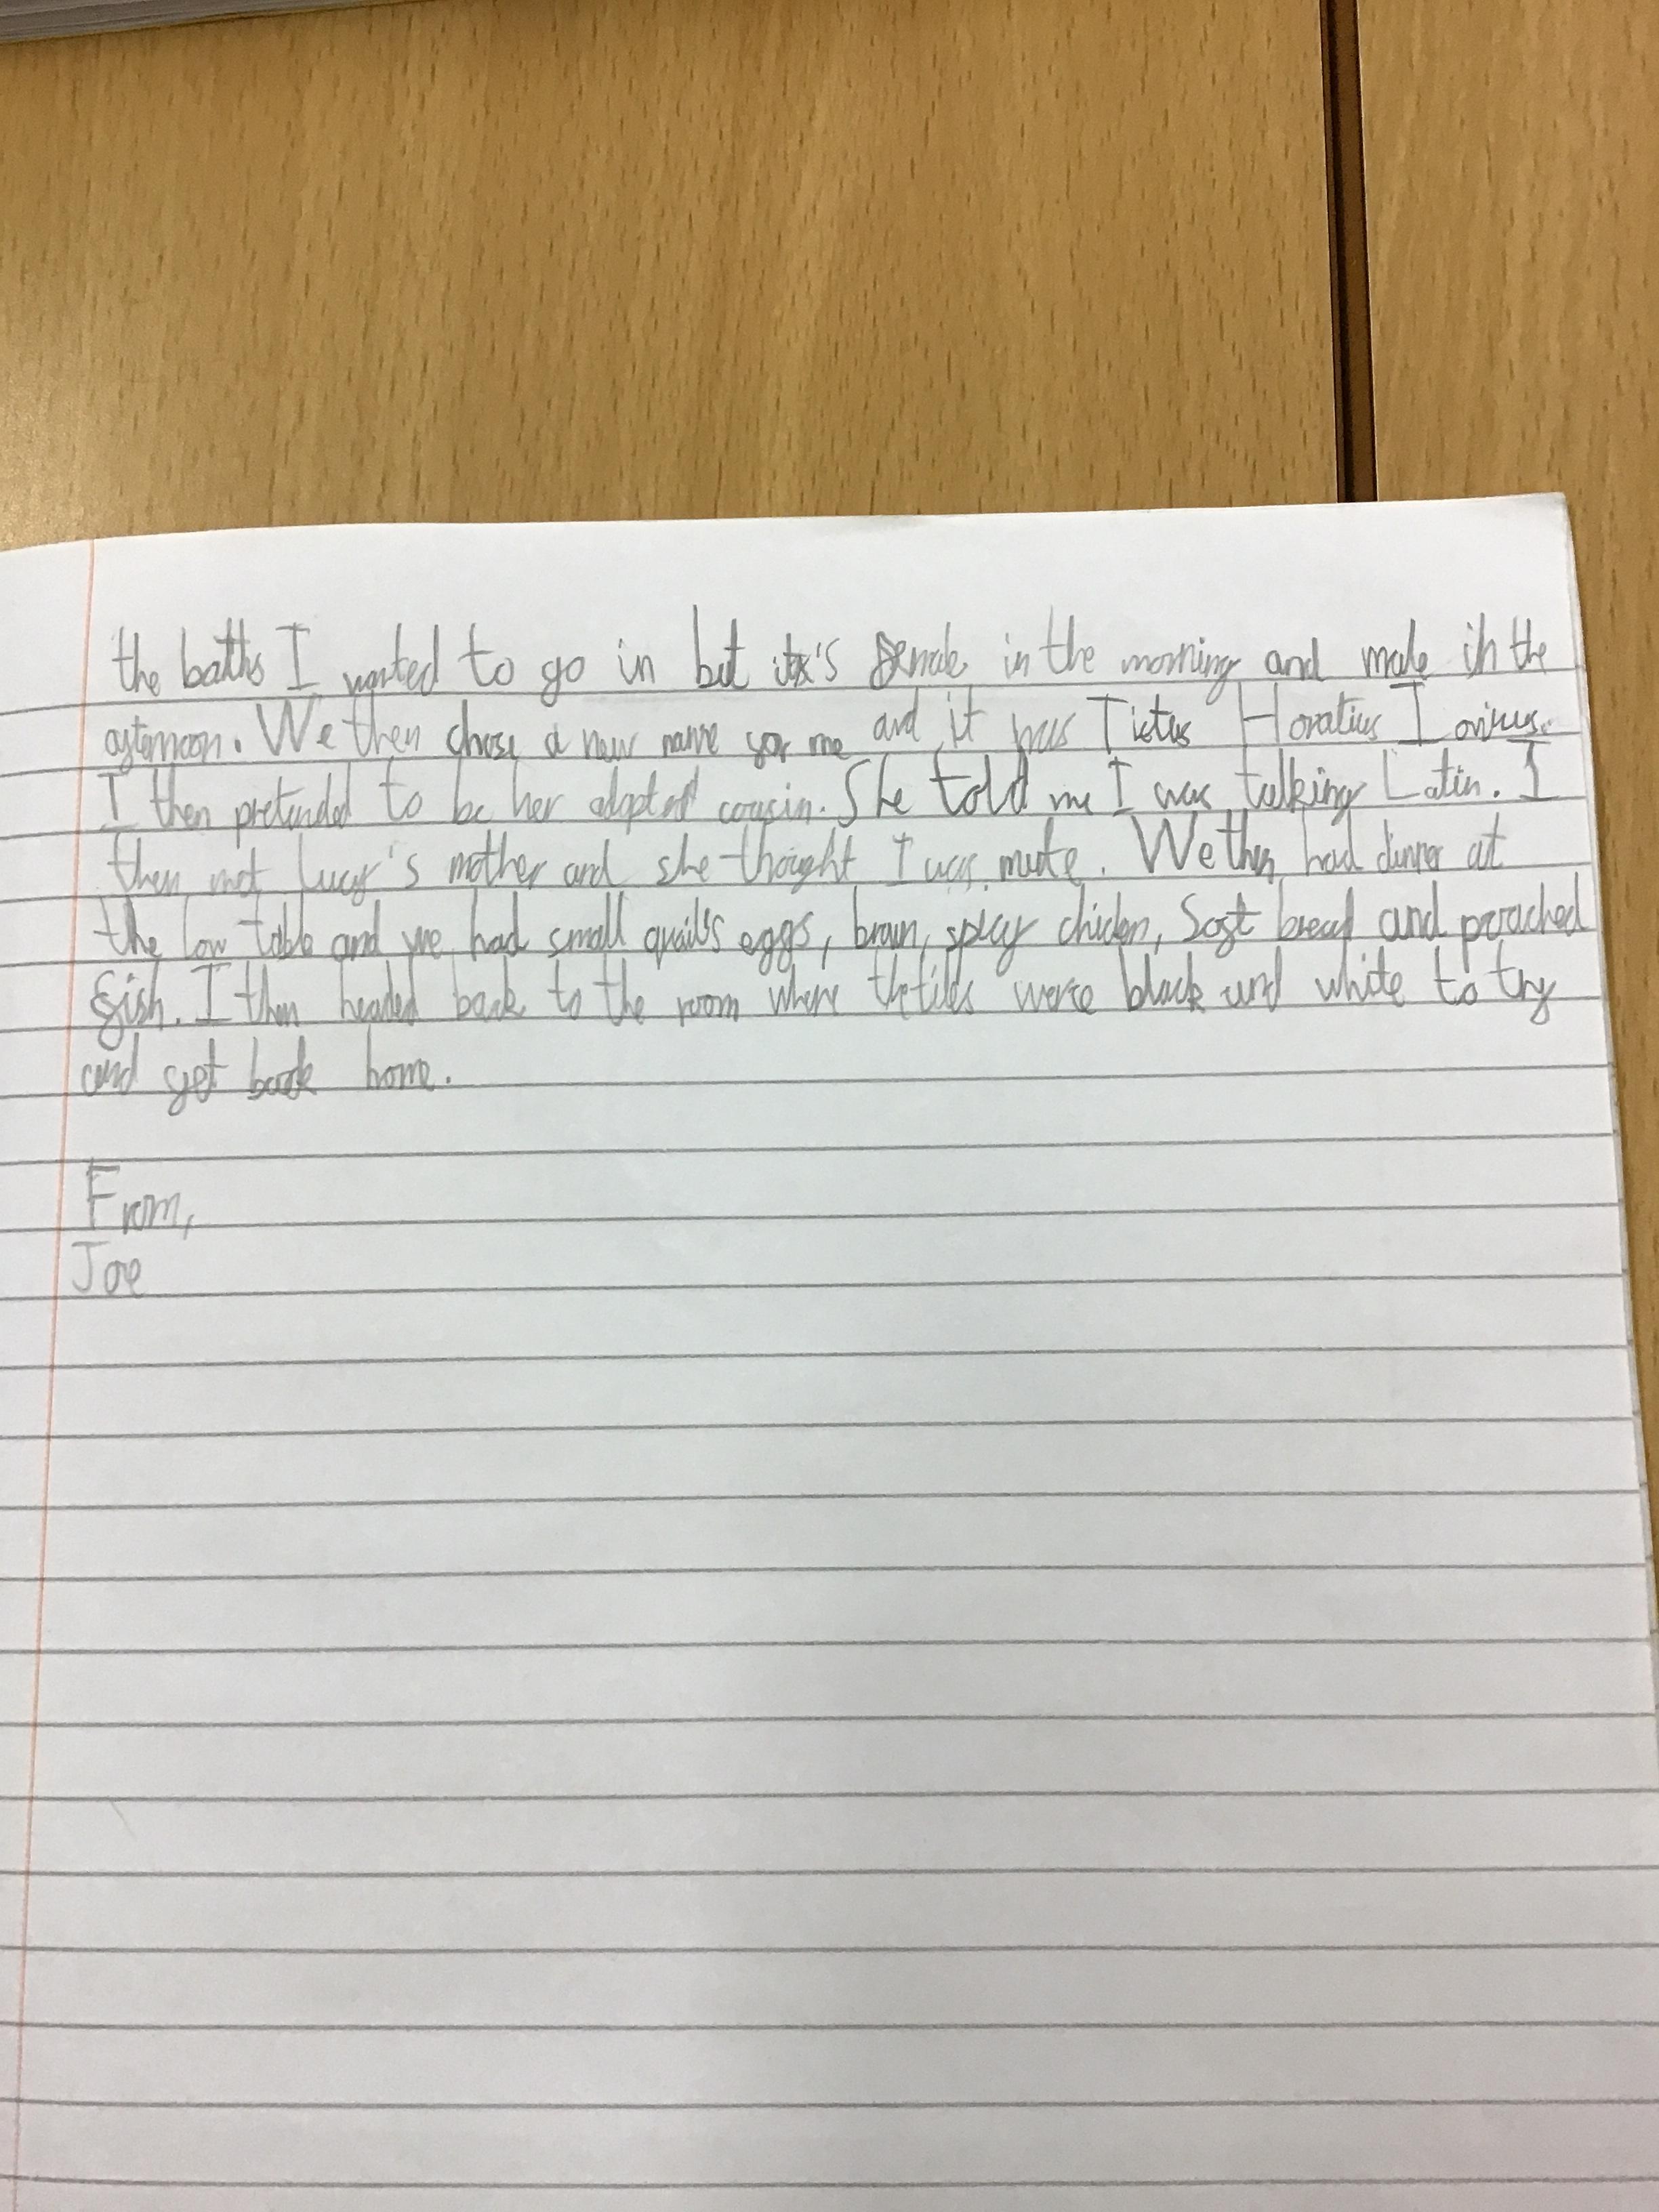 the baths I wanted to go in but it's female in the morning and male in the
afternoon. We then chose a new name for me and it was Tictus Horatius
I then pretended to be her adopted cousin. She told me I was talking Latin. I
then met Lucy's mother and she thought I was mute. We then had dinner at
the low table and we had small quail's eggs, brain, spicy chicken, Soft bread and poached
fish. I then headed back to the room where the tiles were black and white to try
and get back home.
From,
Joe